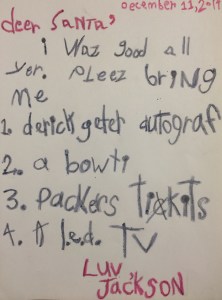 December 11, 201
deer Santa,
i Waz good all
yer. Pleez bring
me
1. derick geter autograf
2. a bowti
3. Packers tixkits
4. A l.e.d. TV
Luv
Jackson